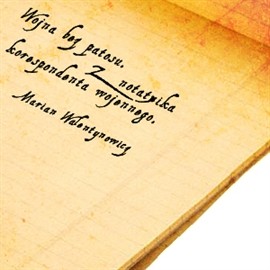 Wojna bez patosu.
Z notatnika
korespondenta wojennego.
Marian Walentynowicz